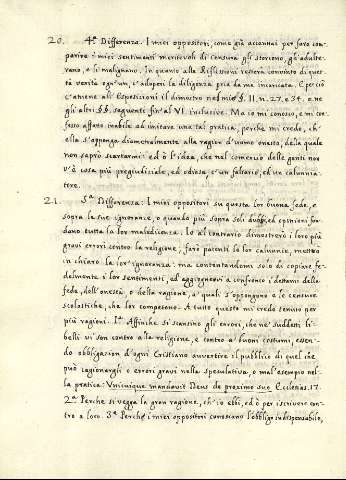 20. 4.ª Differenza. I miei oppositori, come già accennai per faro com-
parire i miei sentimenti mercivoli di censura gli storcono, gli adulte-
rano, e li malignano. In quanto alle Riflessioni restera convinto di ques-
ta verità ogn'un, ch'adopri la diligenza pria da me inarcata. E perciò
ch'attiene all'Esposizioni il dimostro nel mio §. II. n. 27. e 34. e ne
gli altri §§. seguenti fin'al VI. inclusive. Ma io mi conosco, e mi con
fesso affatto inabile ad imitare una tal pratica, perche mi credo, ch'
ella s'opponga diametralmente alla ragion d'uomo onesto, dalla quale
non saprò scartarmi: ed è l'idea, che nel comercio delle genti non
v'è cosa più pregiudiciale, ed odiosa d'un falsario, ed un calunnia
tore.
21. 5.ª Differenza: I miei oppositori su questa lor buona fede, e
sopra la sue ignoranze, o quando più sopra soli dubbj, ed opinioni fon
dano tutta la lor maldicenza: Io al contrario dimostrerò i loro più
gravi errori contro la religione; farò patenti le lor calunnie, metterò
in chiaro la lor' ignoranza: ma contentandomi solo di copiare fe-
delmente i lor sentimenti, ed aggiongervi a confronto i dettami della
fede, dell'onestà, e della ragione, a' quali s'oppongono e le censure
scolastiche, che lor competono. A tutto questo mi credo tenuto per
più ragioni: I.ª Affinche si scansino gli errori, che ne' suddetti li-
belli vi son contro alla religione, e contro a' buoni costumi, essen-
do obbligazion d'ogni Cristiano avvertire il pubblico di quel che
può cagionargli o errori gravi nella speculativa, o mal'esempio nel-
la pratica: Unicuique mandavit Deus de proximo suo Eccles. 17.
2.ª Perche si vegga la gran ragione, ch'io ebbi, ed ò per iscrivere con-
tro a loro. 3.ª Perche i miei oppositori conoscano l'obbligo indispensabile,